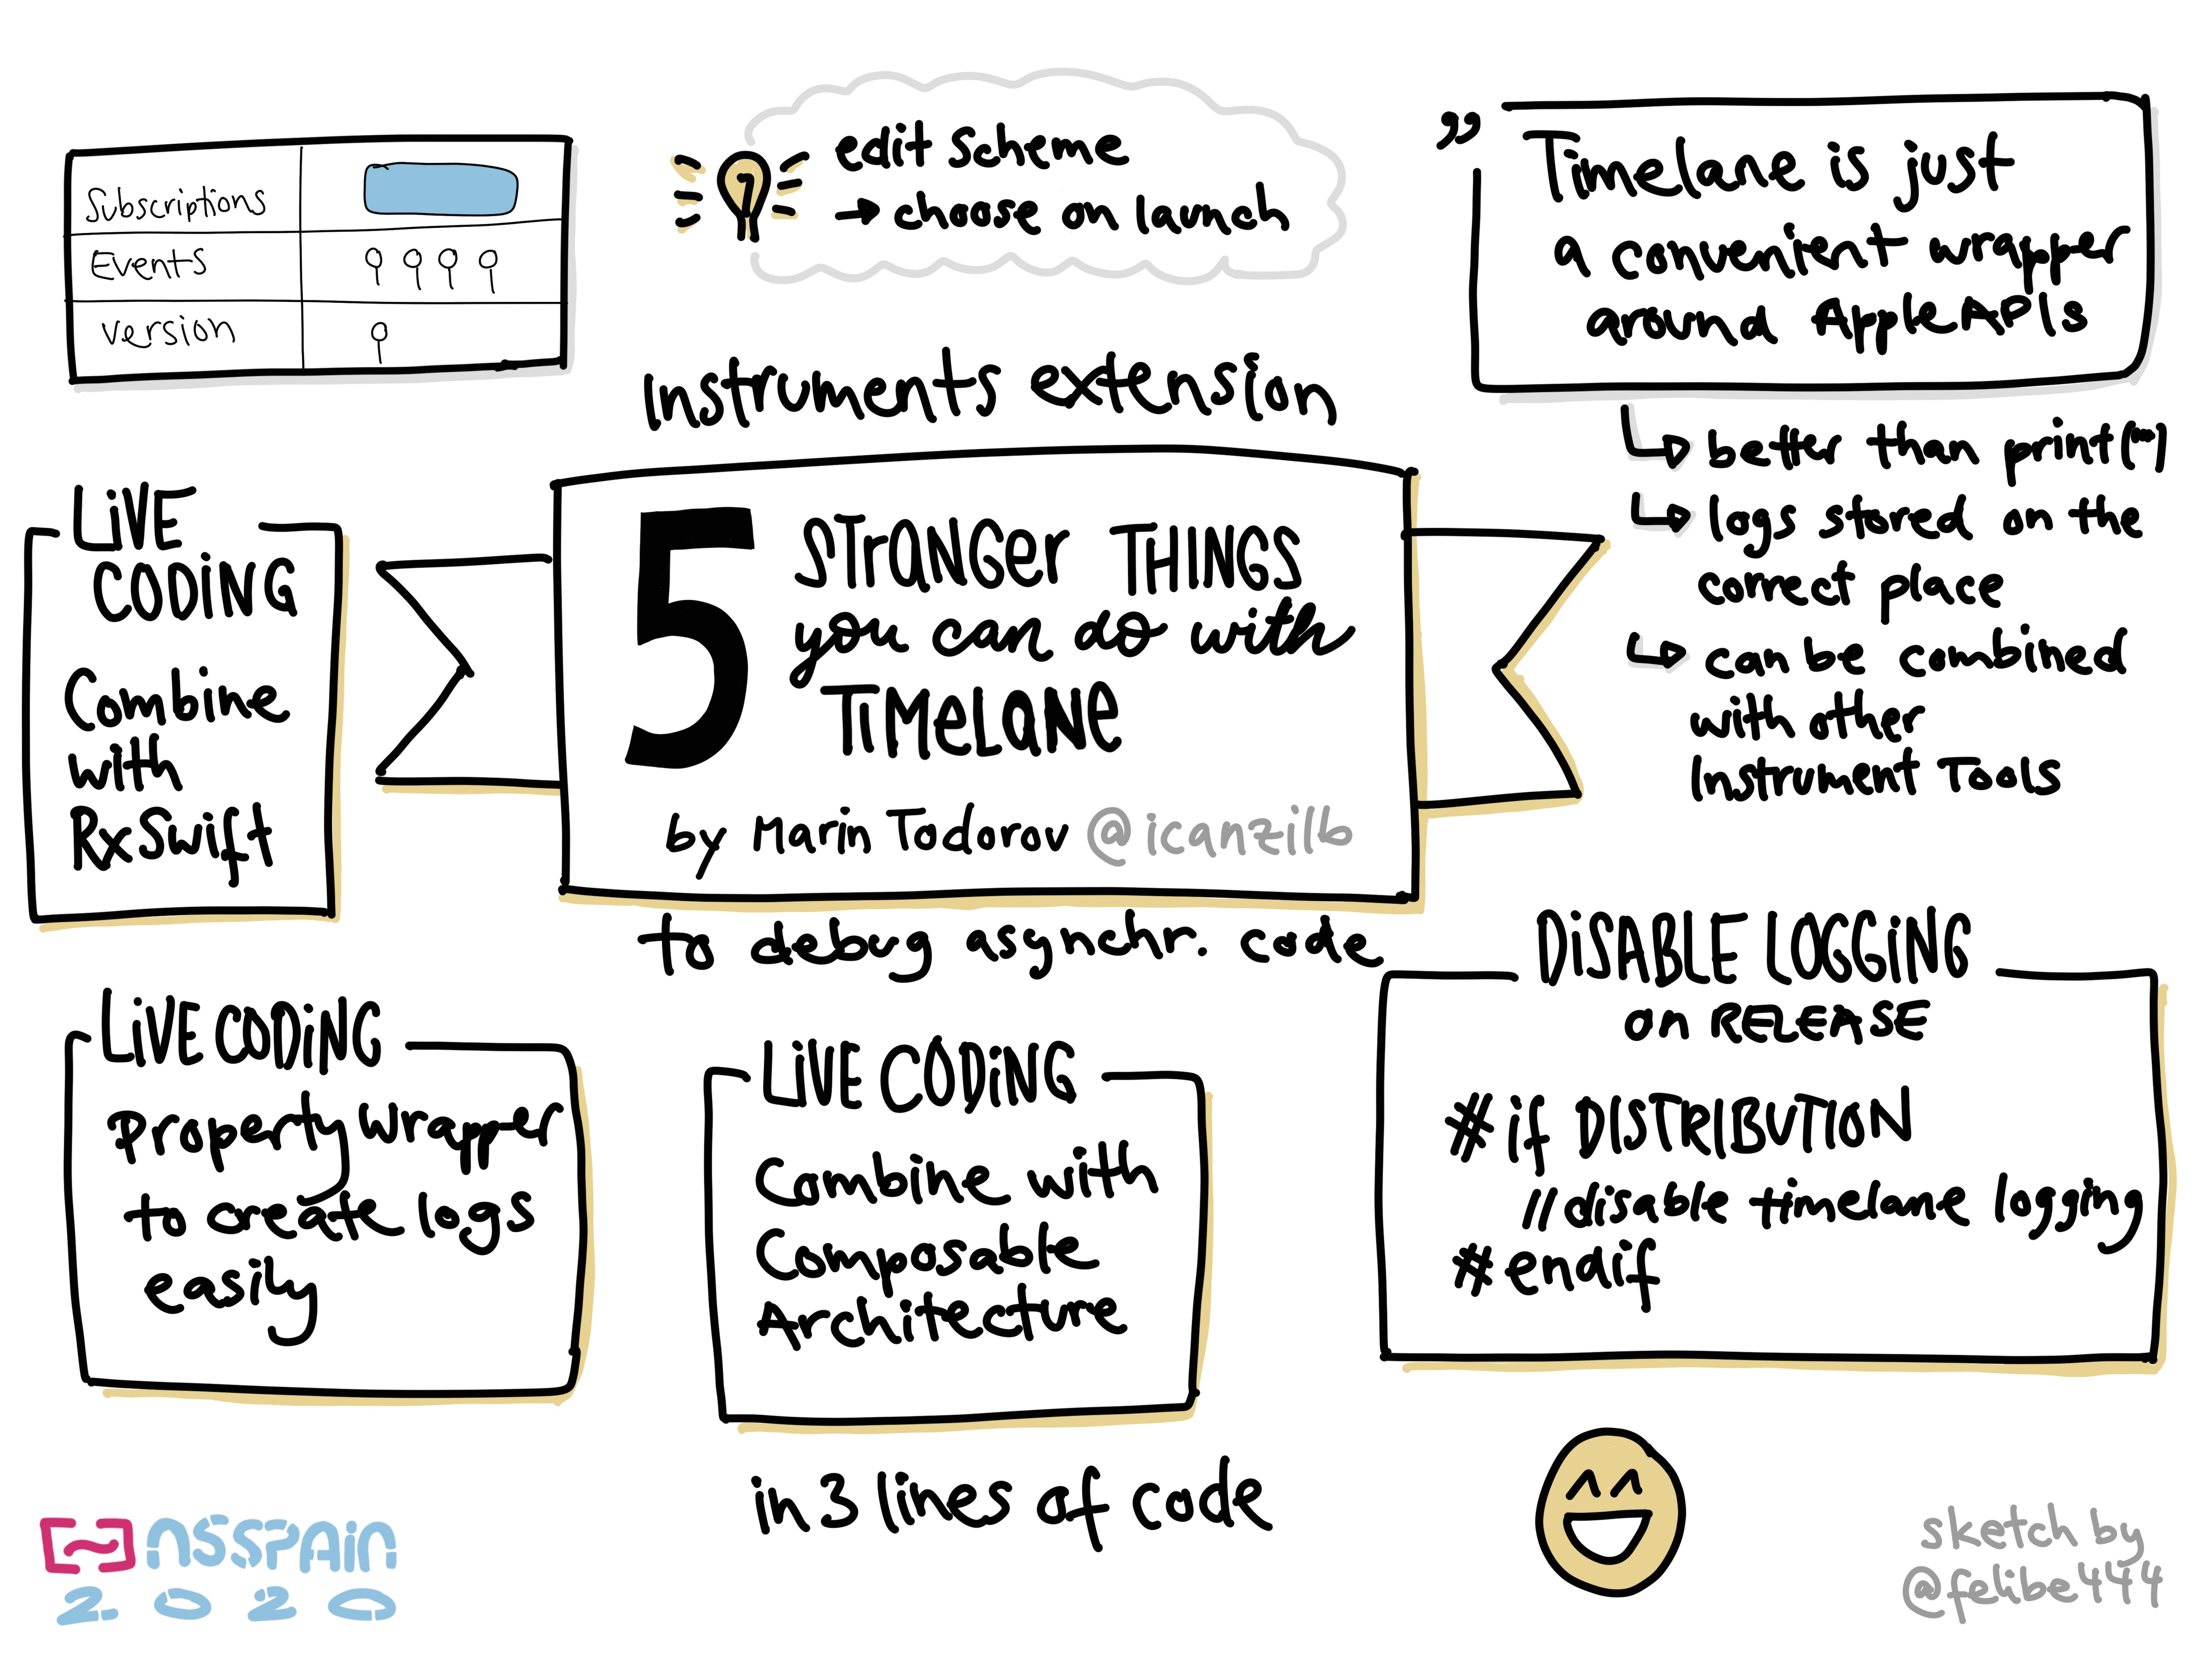 Subscriptions
Events
version
edit scheme
→ choose on launch
”
Timelane is just
a convenient wrapper
around Apple APIs
↳ better than print("")
↳ logs stored on the
correct place
↳ can be combined
with other
Instrument Tools
Instruments extension
5
STRANGER THINGS
you can do with
TIMELANE
by Marin Todorov @icanzilb
to debug asynchr. code
LIVE
CODING
Combine
with
RxSwift
LIVE CODING
Property wrapper
to create logs
easily
LIVE CODING
Combine with
Composable
Architecture
in 3 lines of code
DISABLE LOGGING
on RELEASE
#if DISTRIBUTION
//disable timelane logging
#endif
NSSPAIN
2020
sketch by
@felibe444